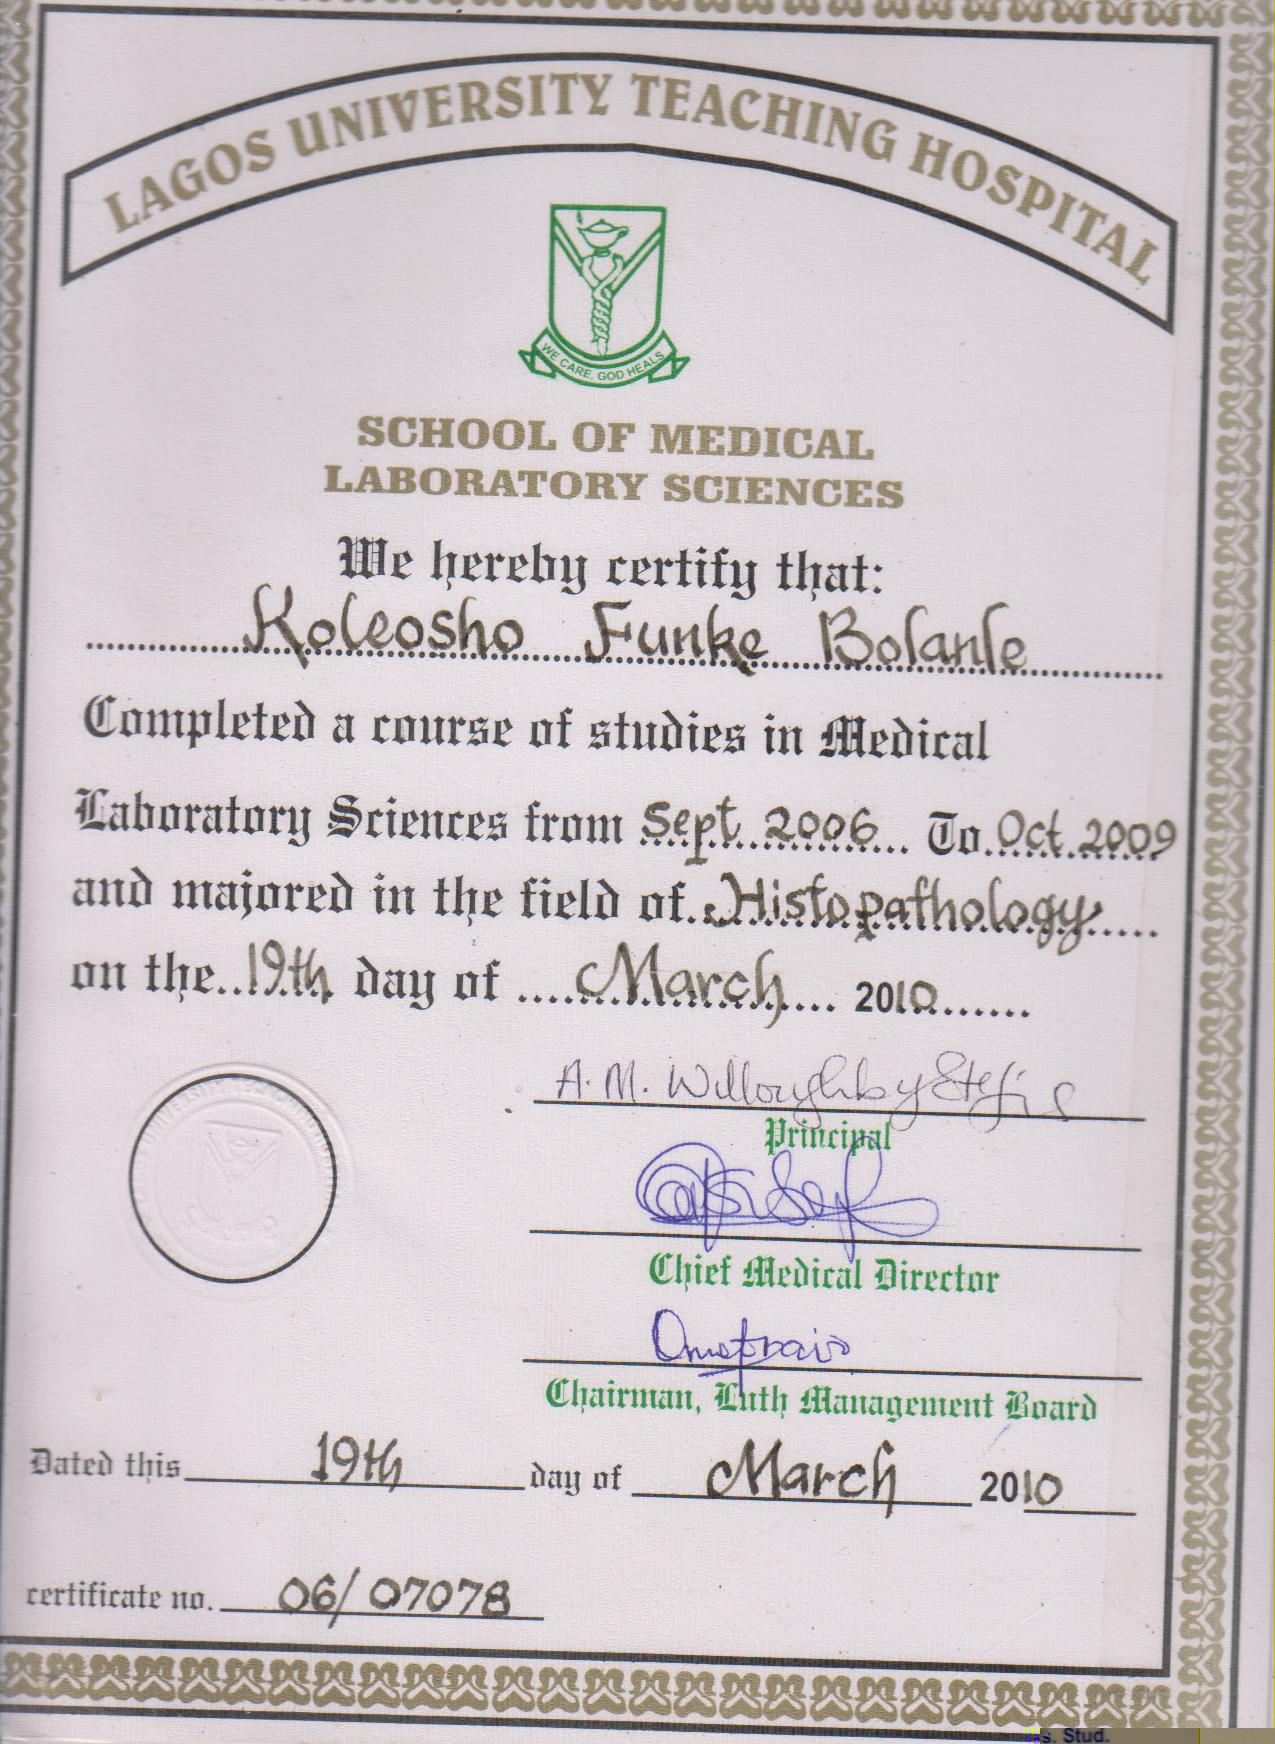 LAGOS UNIVERSITY TEACHING HOSPITAL
WE CARE, GOD HEALS
SCHOOL OF MEDICAL
LABORATORY SCIENCES
We hereby certify that:
Koleosho Funke Bolanle
Completed a course of studies in Medical
Laboratory Sciences from Sept 2006 To Oct 2009
and majored in the field of Histopathology
on the 19th day of March 2010
A. M. Willoughby
Principal
Chief Medical Director
Chairman, Luth Management Board
Dated this 19th day of March 2010
certificate no. 06/07078
s. Stud.